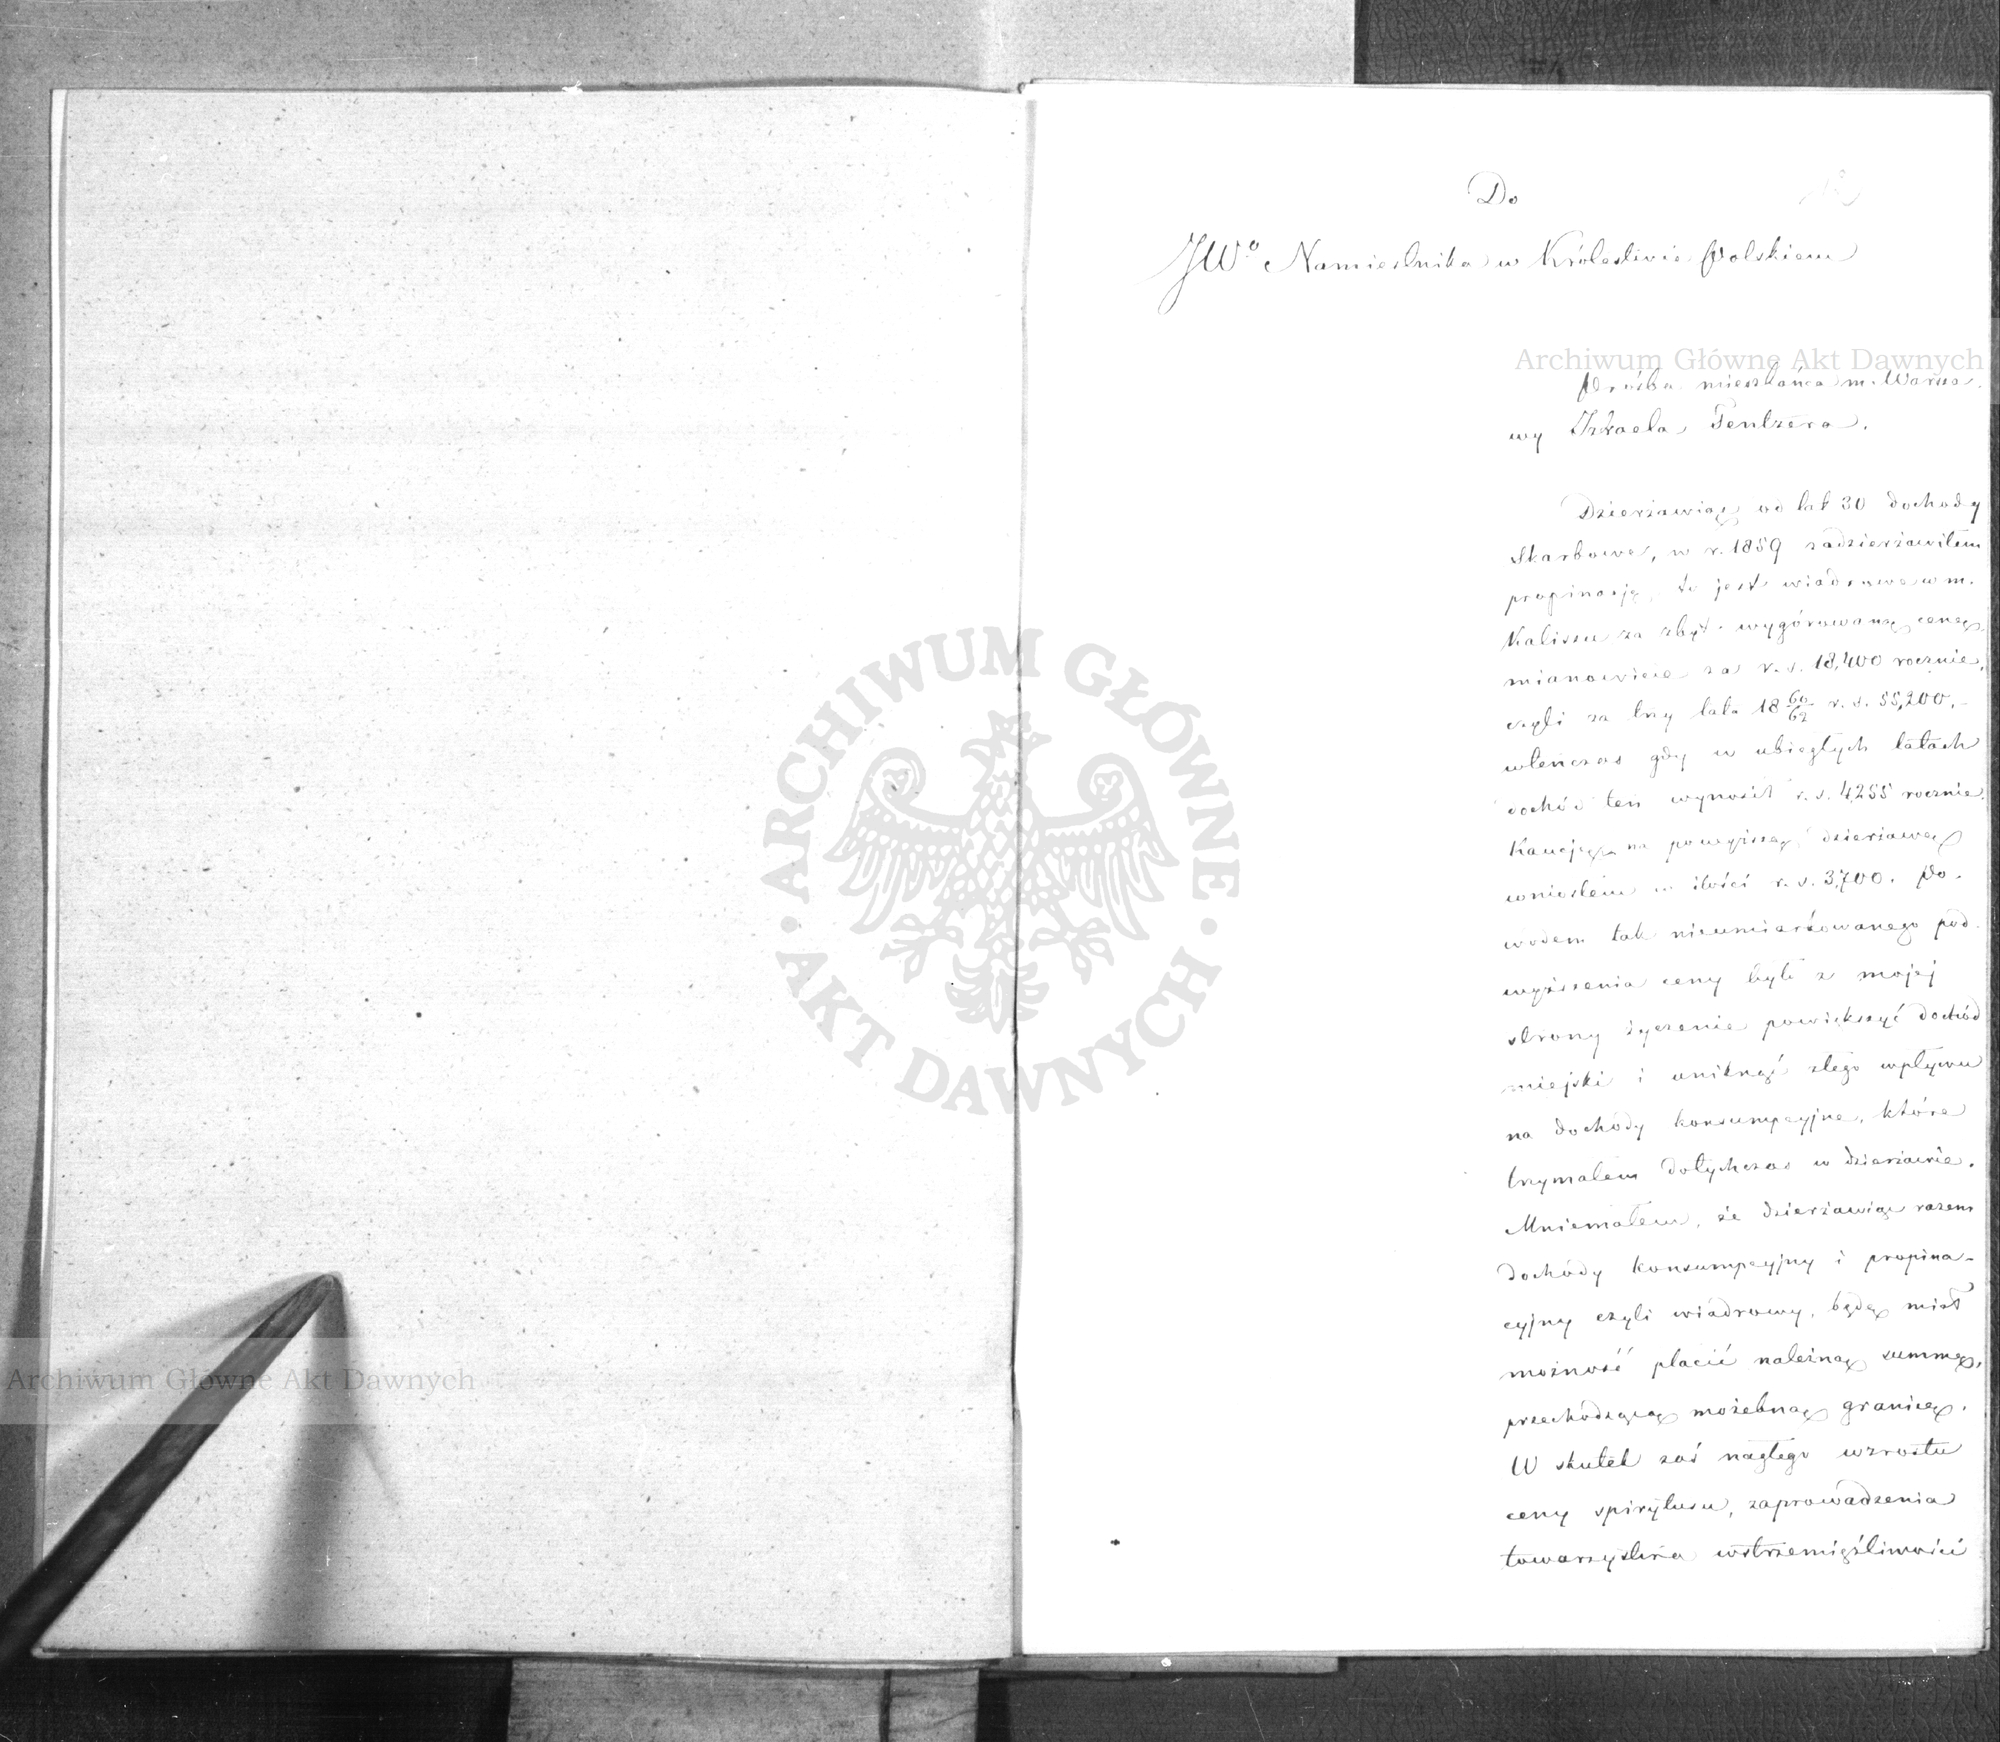 Do
JWo Namiestnika w Królestwie Polskiem
Archiwum Główne Akt Dawnych
Prośba mieszkańca m. Warsza-
wy Izraela Tentzera.
Dzierżawiąc od lat 30 dochody
Skarbowe, w r. 1859 zadzierżawiłem
propinację, to jest wiadrowe w m.
Kaliszu za zbyt wygórowaną cenę,
mianowicie za r. s. 18,400 rocznie,
czyli za trzy lata 18 60/62 r. s. 55,200,-
wtenczas gdy w ubiegłych latach
dochód ten wynosił r. s. 4,255 rocznie.
Kaucję na powyższą dzierżawę
wniosłem w ilości r. s. 3,700. Po-
wodem tak nieumiarkowanego pod-
wyższenia ceny było z mojej
strony życzenie powiększyć dochód
miejski i uniknąć złego wpływu
na dochody konsumpcyjne, które
trzymałem dotychczas w dzierżawie.
Mniemałem, że dzierżawiąc razem
dochody konsumpcyjny i propina-
cyjny czyli wiadrowy, będę miał
możność płacić należną summę,
przechodzącą możebną granicę.
W skutek zaś nagłego wzrostu
ceny spirytusu, zaprowadzenia
towarzystwa wstrzemięźliwości
ARCHIWUM GŁÓWNE
AKT DAWNYCH
Archiwum Główne Akt Dawnych